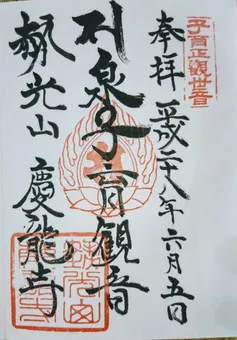 子育正観世音
奉拝 平成二十八年六月五日
泉子育観音
光山 慶龍寺